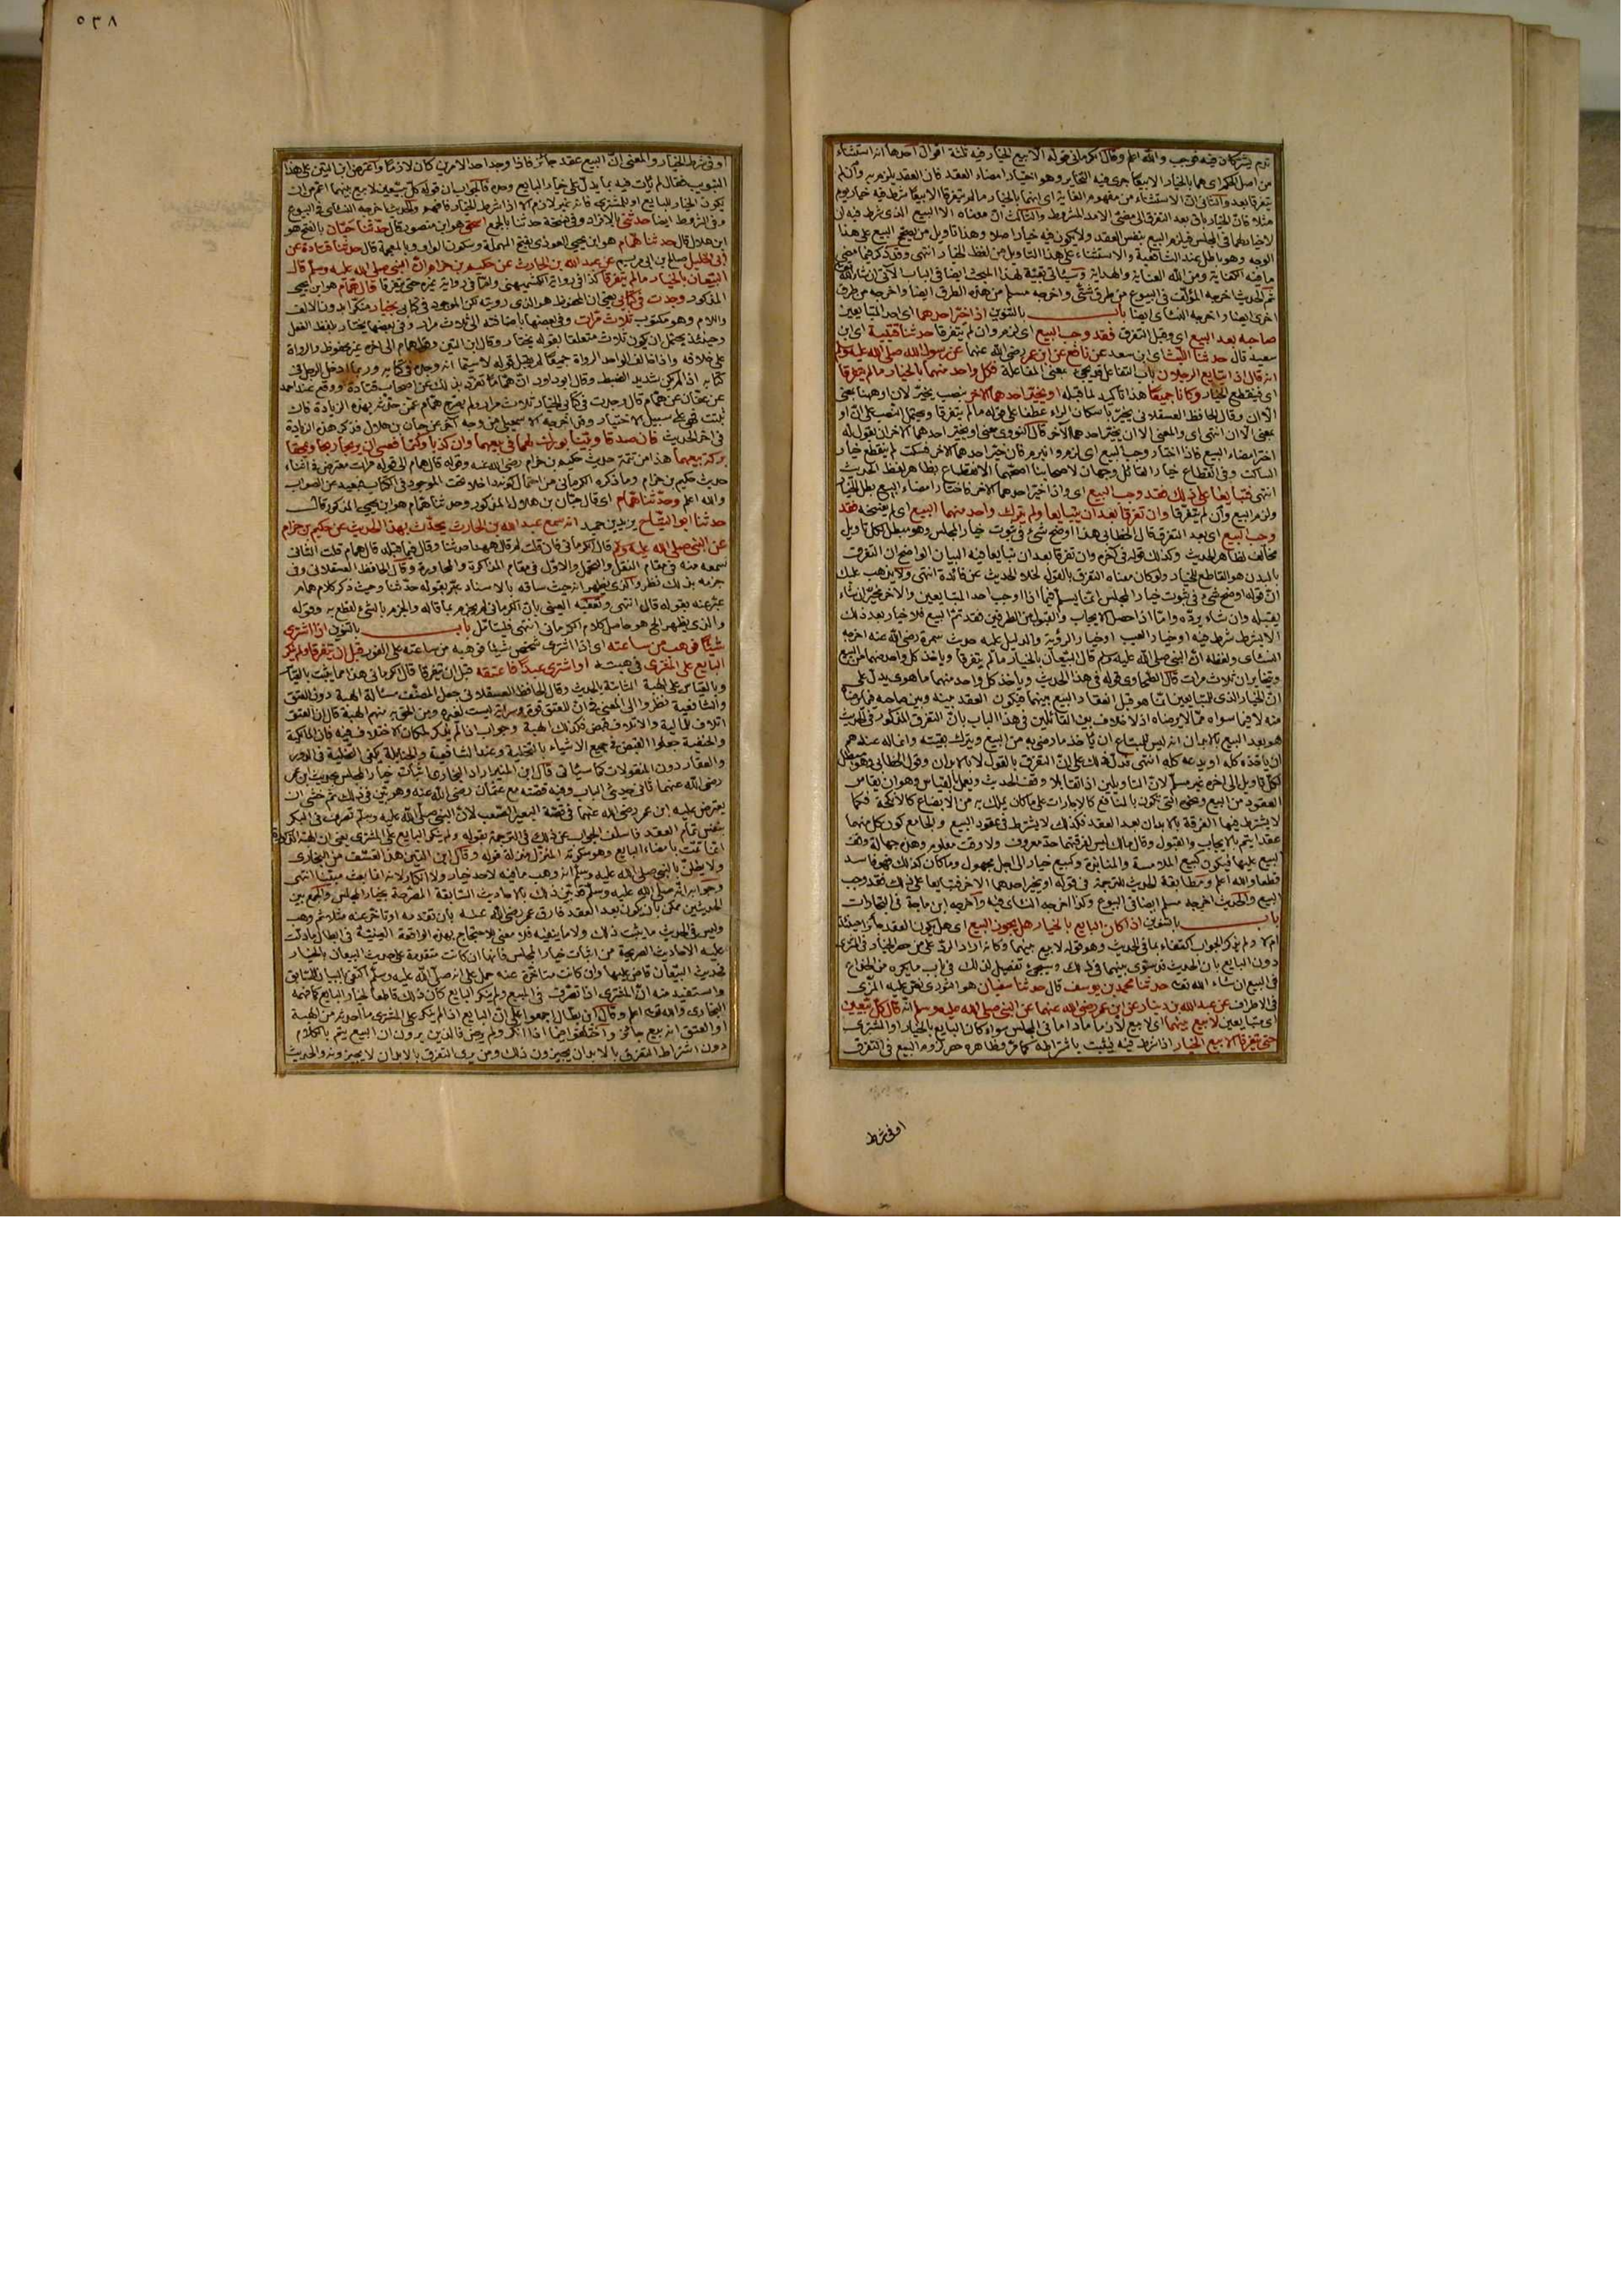 من اصل الحكم اى هما بالخيار الا بيعا جرى فيه التخاير وهو اختيار امضاء العقد فان العقد يلزم به وان لم
يتفرقا بعد والثانى ان الاستثناء من مفهوم الغاية اى انهما بالخيار ما لم يتفرقا الا بيعا شرط فيه خيار يوم
مثلا فان الخيار باق بعد التفرق الى مضى الامد المشروط والثالث ان معناه الا البيع الذى شرط فيه ان
لا خيار لهما فى المجلس فيلزم البيع بنفس العقد ولا يكون فيه خيار اصلا وهذا تاويل من يصحح البيع على هذا
اخرى ايضا واخرجه النسائى ايضا باب بالتنوين اذا خير احدهما اى احد المتبايعين
صاحبه بعد البيع اى وقبل التفرق فقد وجب البيع اى لزم وان لم يتفرقا حدثنا قتيبة اى ابن
سعيد قال حدثنا الليث اى ابن سعد عن نافع عن ابن عمر رضى الله عنهما عن رسول الله صلى الله عليه وسلم
انه قال اذا تبايع الرجلان باب التفاعل قد يجئ بمعنى المفاعلة فكل واحد منهما بالخيار ما لم يتفرقا
اى فينقطع الخيار وكانا جميعا هذا تاكيد لما قبله او يخير احدهما الاخر بنصب يخير لان او ههنا بمعنى
اختر امضاء البيع فاذا اختار وجب البيع اى لزم وانبرم فان خير احدهما الاخر فسكت لم ينقطع خيار
انتهى فتبايعا على ذلك فقد وجب البيع اى واذا خير احدهما الاخر فاختار امضاء البيع بطل الخيار
ولزم البيع وان لم يتفرقا وان تفرقا بعد ان يتبايعا ولم يترك واحد منهما البيع اى لم يفسخه فقد
وجب البيع اى بعد التفرق قال الخطابى هذا اوضح شئ فى ثبوت خيار المجلس وهو مبطل لكل تاويل
مخالف لظاهر الحديث وكذلك قوله فى اخره وان تفرقا بعد ان تبايعا فيه البيان الواضح ان التفرق
بالبدن هو القاطع للخيار ولو كان معناه التفرق بالقول لخلا الحديث عن فائدة انتهى ولا يذهب عليك
ان قوله اوضح شئ فى ثبوت خيار المجلس انما يسلم فيما اذا اوجب احد المتبايعين والاخر مخير ان شاء
يقبله وان شاء يرده واما اذا حصل الايجاب والقبول من الطرفين فقد تم البيع فلا خيار بعد ذلك
الا بشرط شرط فيه او خيار العيب او خيار الرؤية والدليل عليه حديث سمرة رضى الله عنه اخرجه
النسائى ولفظه ان النبى صلى الله عليه وسلم قال البيعان بالخيار ما لم يتفرقا وياخذ كل واحد منهما من البيع
ويتخايران ثلاث مرات قال الطحاوى قوله فى هذا الحديث وياخذ كل واحد منهما ما هوى يدل على
منه لا فيما سواه مما لا يرضاه اذ لا خلاف بين القائلين فى هذا الباب بان التفرق المذكور فى الحديث
هو بعد البيع بالابدان انه ليس للمبتاع ان ياخذ ما رضى به من البيع ويترك بقيته وانما له عندهم
ان ياخذه كله او يدعه كله انتهى فدل ذلك على ان التفرق بالقول لا بالابدان وقول الخطابى وهو مبطل
لكل تاويل الى اخره غير مسلم لان التاويلين اذا تقابلا وقف الحديث ويعمل بالقياس وهو ان يقاس
العقود من البيع وهى التى تكون بالمنافع كالاجارات على ما كان يملك به من الابضاع كالانكحة فكما
لا يشترط فيها الفرقة بالابدان بعد العقد فكذلك لا يشترط فى عقود البيع والجامع كون كل منهما
عقدا يتم بالايجاب والقبول وقال مالك ليس لفرقتهما حد معروف ولا وقت معلوم وهذه جهالة وقف
البيع عليها فيكون كبيع الملامسة والمنابذة وكبيع خيار الى اجل مجهول وما كان كذلك فهو فاسد
قطعا والله اعلم ومطابقة الحديث للترجمة فى قوله او يخير احدهما الاخر فتبايعا على ذلك فقد وجب
البيع والحديث اخرجه مسلم ايضا فى البيوع وكذا اخرجه النسائى فيه واخرجه ابن ماجة فى التجارات
باب بالتنوين اذا كان البايع بالخيار هل يجوز البيع اى هل يكون العقد جائزا حينئذ
ام لا ولم يذكر الجواب اكتفاء بما فى الحديث وهو قوله لا بيع بينهما وكانه اراد الرد على من حصر الخيار فى المشترى
دون البايع بان الحديث قد سوى بينهما فى ذلك وسيجئ تفصيل لذلك فى باب ما يكره من الخداع
فى البيع ان شاء الله تعالى حدثنا محمد بن يوسف قال حدثنا سفيان هو الثورى نص عليه المزى
فى الاطراف عن عبد الله بن دينار عن ابن عمر رضى الله عنهما عن النبى صلى الله عليه وسلم انه قال كل بيعين
اى متبايعين لا بيع بينهما اى لا بيع لازما ما داما فى المجلس سواء كان البايع بالخيار او المشترى
حتى يتفرقا الا بيع الخيار اذا شرط فيه فيثبت باشتراطه كما مر وظاهره حصر لزوم البيع فى التفرق
او فى شرط
٥٣٨
او فى شرط الخيار والمعنى ان البيع عقد جائز فاذا وجد احد الامرين كان لازما واعترض ابن التين على هذا
التبويب فقال لم يات فيه بما يدل على خيار البايع وحده فالجواب ان قوله كل بيعين لا بيع بينهما اعم من ان
يكون الخيار للبايع او للمشترى فانه غير لازم الا اذا شرط الخيار فافهم والحديث اخرجه النسائى فى البيوع
وفى الشروط ايضا حدثنى بالافراد وفى نسخة حدثنا بالجمع اسحق هو ابن منصور قال حدثنا حبان بالفتح هو
ابن هلال قال حدثنا همام هو ابن يحيى العوذى بفتح المهملة وسكون الواو وبالمعجمة قال حدثنا قتادة عن
ابى الخليل صالح بن ابى مريم عن عبد الله بن الحارث عن حكيم بن حزام ان النبى صلى الله عليه وسلم قال
البيعان بالخيار ما لم يتفرقا كذا فى رواية الكشميهنى واما فى رواية غيره حتى يتفرقا قال همام هو ابن يحيى
المذكور وجدت فى كتابى يعنى ان المحفوظ هو الذى رويته لكن الموجود فى كتابى بخيار منكرا بدون الالف
واللام وهو مكتوب ثلاث مرات وفى بعضها باضافته الى ثلاث مرار وفى بعضها يختار بلفظ الفعل
وحينئذ يحتمل ان يكون ثلاث متعلقا بقوله يختار وقال ابن التين وقول همام الى اخره غير محفوظ والرواة
على خلافه واذا خالف الواحد الرواة جميعا لم يقبل قوله لا سيما انه وجده فى كتابه وربما ادخل الرجل فى
كتابه اذا لم يكن شديد الضبط وقال ابو داود ان هماما تفرد بذلك عن اصحاب قتادة ووقع عند احمد
عن عفان عن همام قال وجدت فى كتابى الخيار ثلاث مرار ولم يصرح همام عمن حدثه بهذه الزيادة فان
ثبتت فهى على سبيل الاختيار وقد اخرجه الاسمعيلى من وجه اخر عن حبان بن هلال فذكر هذه الزيادة
فى اخر الحديث فان صدقا وبينا بورك لهما فى بيعهما وان كذبا وكتما فعسى ان يربحا ربحا ويمحقا
بركة بيعهما هذا من تتمة حديث حكيم بن حزام رضى الله عنه وقوله قال همام الى قوله مرات معترض فى اثناء
والله اعلم وحدثنا همام اى قال حبان بن هلال المذكور وحدثنا همام هو ابن يحيى المذكور قال
حدثنا ابو التياح يزيد بن حميد انه سمع عبد الله بن الحارث يحدث بهذا الحديث عن حكيم بن حزام
عن النبى صلى الله عليه وسلم قال الكرمانى فان قلت لم قال ههنا حدثنا وقال فيما قبله قال همام قلت الثانى
سمعه منه فى مقام النقل والتحمل والاول فى مقام المذاكرة والمحاورة وقال الحافظ العسقلانى وفى
جزمه بذلك نظر والذى يظهر انه حيث ساقه بالاسناد عبر بقوله حدثنا وحيث ذكر كلام همام
عبر عنه بقوله قال انتهى وتعقبه العينى بان الكرمانى لم يجزم بما قاله والجزم بالشئ القطع به وقوله
والذى يظهر الخ هو حاصل كلام الكرمانى انتهى فليتامل باب بالتنوين اذا اشترى
شيئا فوهب من ساعته اى اذا اشترى شخص شيئا فوهبه من ساعته على الفور قبل ان يتفرقا ولم ينكر
البايع على المشترى فى هبته او اشترى عبدا فاعتقه قبل ان يتفرقا قال الكرمانى هذا مما يثبت بالقياس
اتلاف للمالية والاتلاف قبض فكذلك الهبة وجواب اذا لم يذكر لمكان الاختلاف فيه فان المالكية
والحنفية جعلوا القبض فى جميع الاشياء بالتخلية وعند الشافعية والحنابلة يكفى التخلية فى الدور
والعقار دون المنقولات كما سياتى قال ابن المنير اراد البخارى اثبات خيار المجلس بحديث ابن عمر
رضى الله عنهما ثانى حديثى الباب وفيه قصته مع عثمان رضى الله عنه وهو بين فى ذلك ثم خشى ان
يعترض عليه ابن عمر رضى الله عنهما فى قصة البعير الصعب لان النبى صلى الله عليه وسلم تصرف فى البكر
بنفس تمام العقد فاسلف الجواب عن ذلك فى الترجمة بقوله ولم ينكر البايع على المشترى يعنى ان الهبة المذكورة
انما تمت بامضاء البايع وهو سكوته المنزل منزلة قوله وقال ابن التين هذا تعسف من البخارى
ولا يظن بالنبى صلى الله عليه وسلم انه وهب ما فيه لاحد خيار ولا انكار لانه انما بعث مبينا انتهى
وجوابه انه صلى الله عليه وسلم قد بين ذلك بالاحاديث السابقة المصرحة بخيار المجلس والجمع بين
الحديثين ممكن بان يكون بعد العقد فارق عمر رضى الله عنه بان تقدمه او تاخر عنه مثلا ثم وهب
وليس فى الحديث ما يثبت ذلك ولا ما ينفيه فلا معنى للاحتجاج بهذه الواقعة العينية فى ابطال ما دلت
عليه الاحاديث الصريحة من اثبات خيار المجلس فانها ان كانت متقدمة على حديث البيعان بالخيار
فحديث البيعان قاض عليها وان كانت متاخرة عنه حمل على انه صلى الله عليه وسلم اكتفى بالبيان السابق
واستفيد منه ان المشترى اذا تصرف فى المبيع ولم ينكر البايع كان ذلك قاطعا لخيار البايع كما فهمه
البخارى والله تعالى اعلم وقال ابن بطال اجمعوا على ان البايع اذا لم ينكر على المشترى ما احدثه من الهبة
او العتق انه بيع جائز واختلفوا فيما اذا انكر ولم يرض فالذين يرون ان البيع يتم بالكلام
دون اشتراط التفرق بالابدان يجيزون ذلك ومن يرى التفرق بالابدان لا يجيزونه والحديث